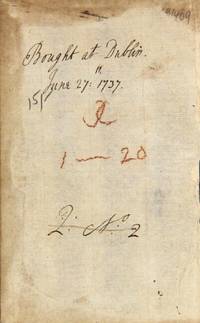 Bought at Dublin.
June 27: 1737.
15/
1 — 20
2: N.o 2